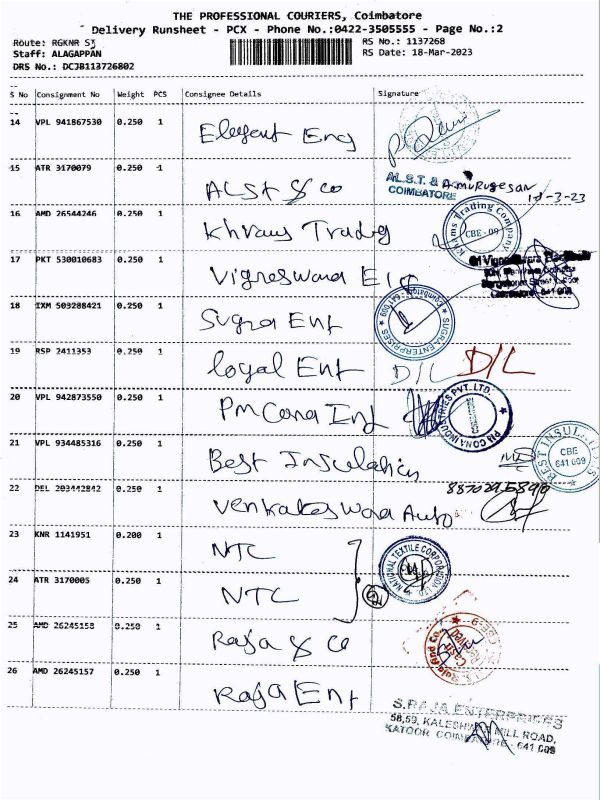 THE PROFESSIONAL COURIERS, Coimbatore
Delivery Runsheet - PCX - Phone No.:0422-3505555 - Page No.:2
Route: RGKNR
RS No.: 1137268
Staff: ALAGAPPAN
RS Date: 18-Mar-2023
DRS No.: DCJB113726802
S No Consignment No Weight PCS Consignee Details Signature
14 VPL 941867530 0.250 1 Elegant Eng
15 ATR 3170079 0.250 1 ALST & co
AL.S.T. &
COIMBATORE
A.murugesan
18-3-23
16 AMD 26544246 0.250 1 Khrams Trading
Khams Trading Company
CBE - 09
17 PKT 530010683 0.250 1 Vigneswara
18 IXM 503208421 0.250 1 Sugra Ent
SUGRA ENTERPRISES
Coimbatore - 641 009
19 RSP 2411353 0.250 1 loyal Ent D/L D/L
20 VPL 942873550 0.250 1 Pm Cona Ind
PM CONA INDUSTRIES PVT. LTD.
21 VPL 934485316 0.250 1 Best Insulation
BEST INSUL
CBE
641 009
22 DEL 203442842 0.250 1 Venkateswara Auto
23 KNR 1141951 0.200 1 NTC
NATIONAL TEXTILE CORPORATION LTD
24 ATR 3170005 0.250 1 NTC
25 AMD 26245158 0.250 1 Raja & Co
26 AMD 26245157 0.250 1 Raja Ent
S.RAJA ENTERPRISES
58,59, KALESH MILL ROAD,
KATOOR COIMBATORE - 641 009